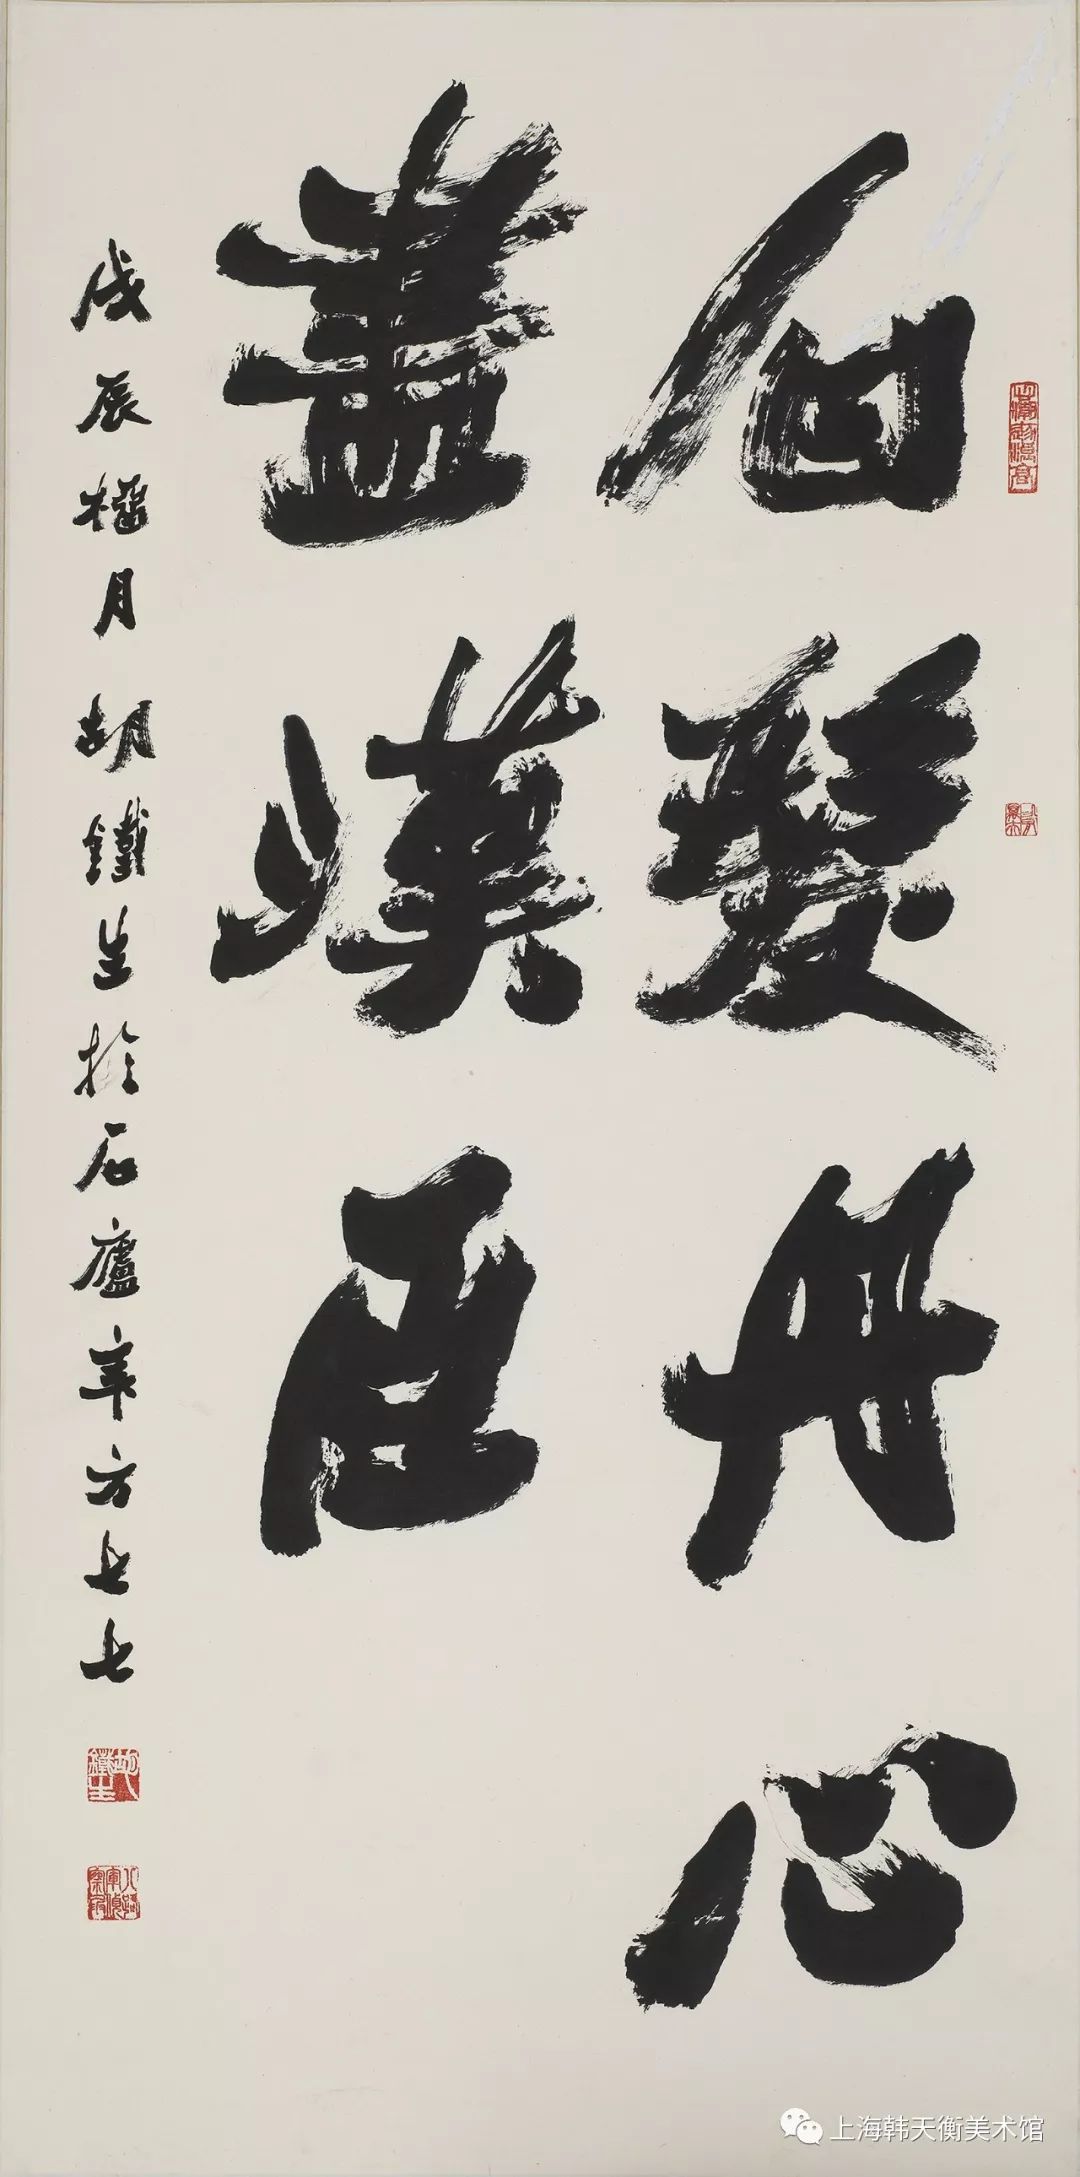 白髮丹心
盡漢臣
戊辰榴月胡鐵生於石廬年方七七
胡鐵生
上海韩天衡美术馆